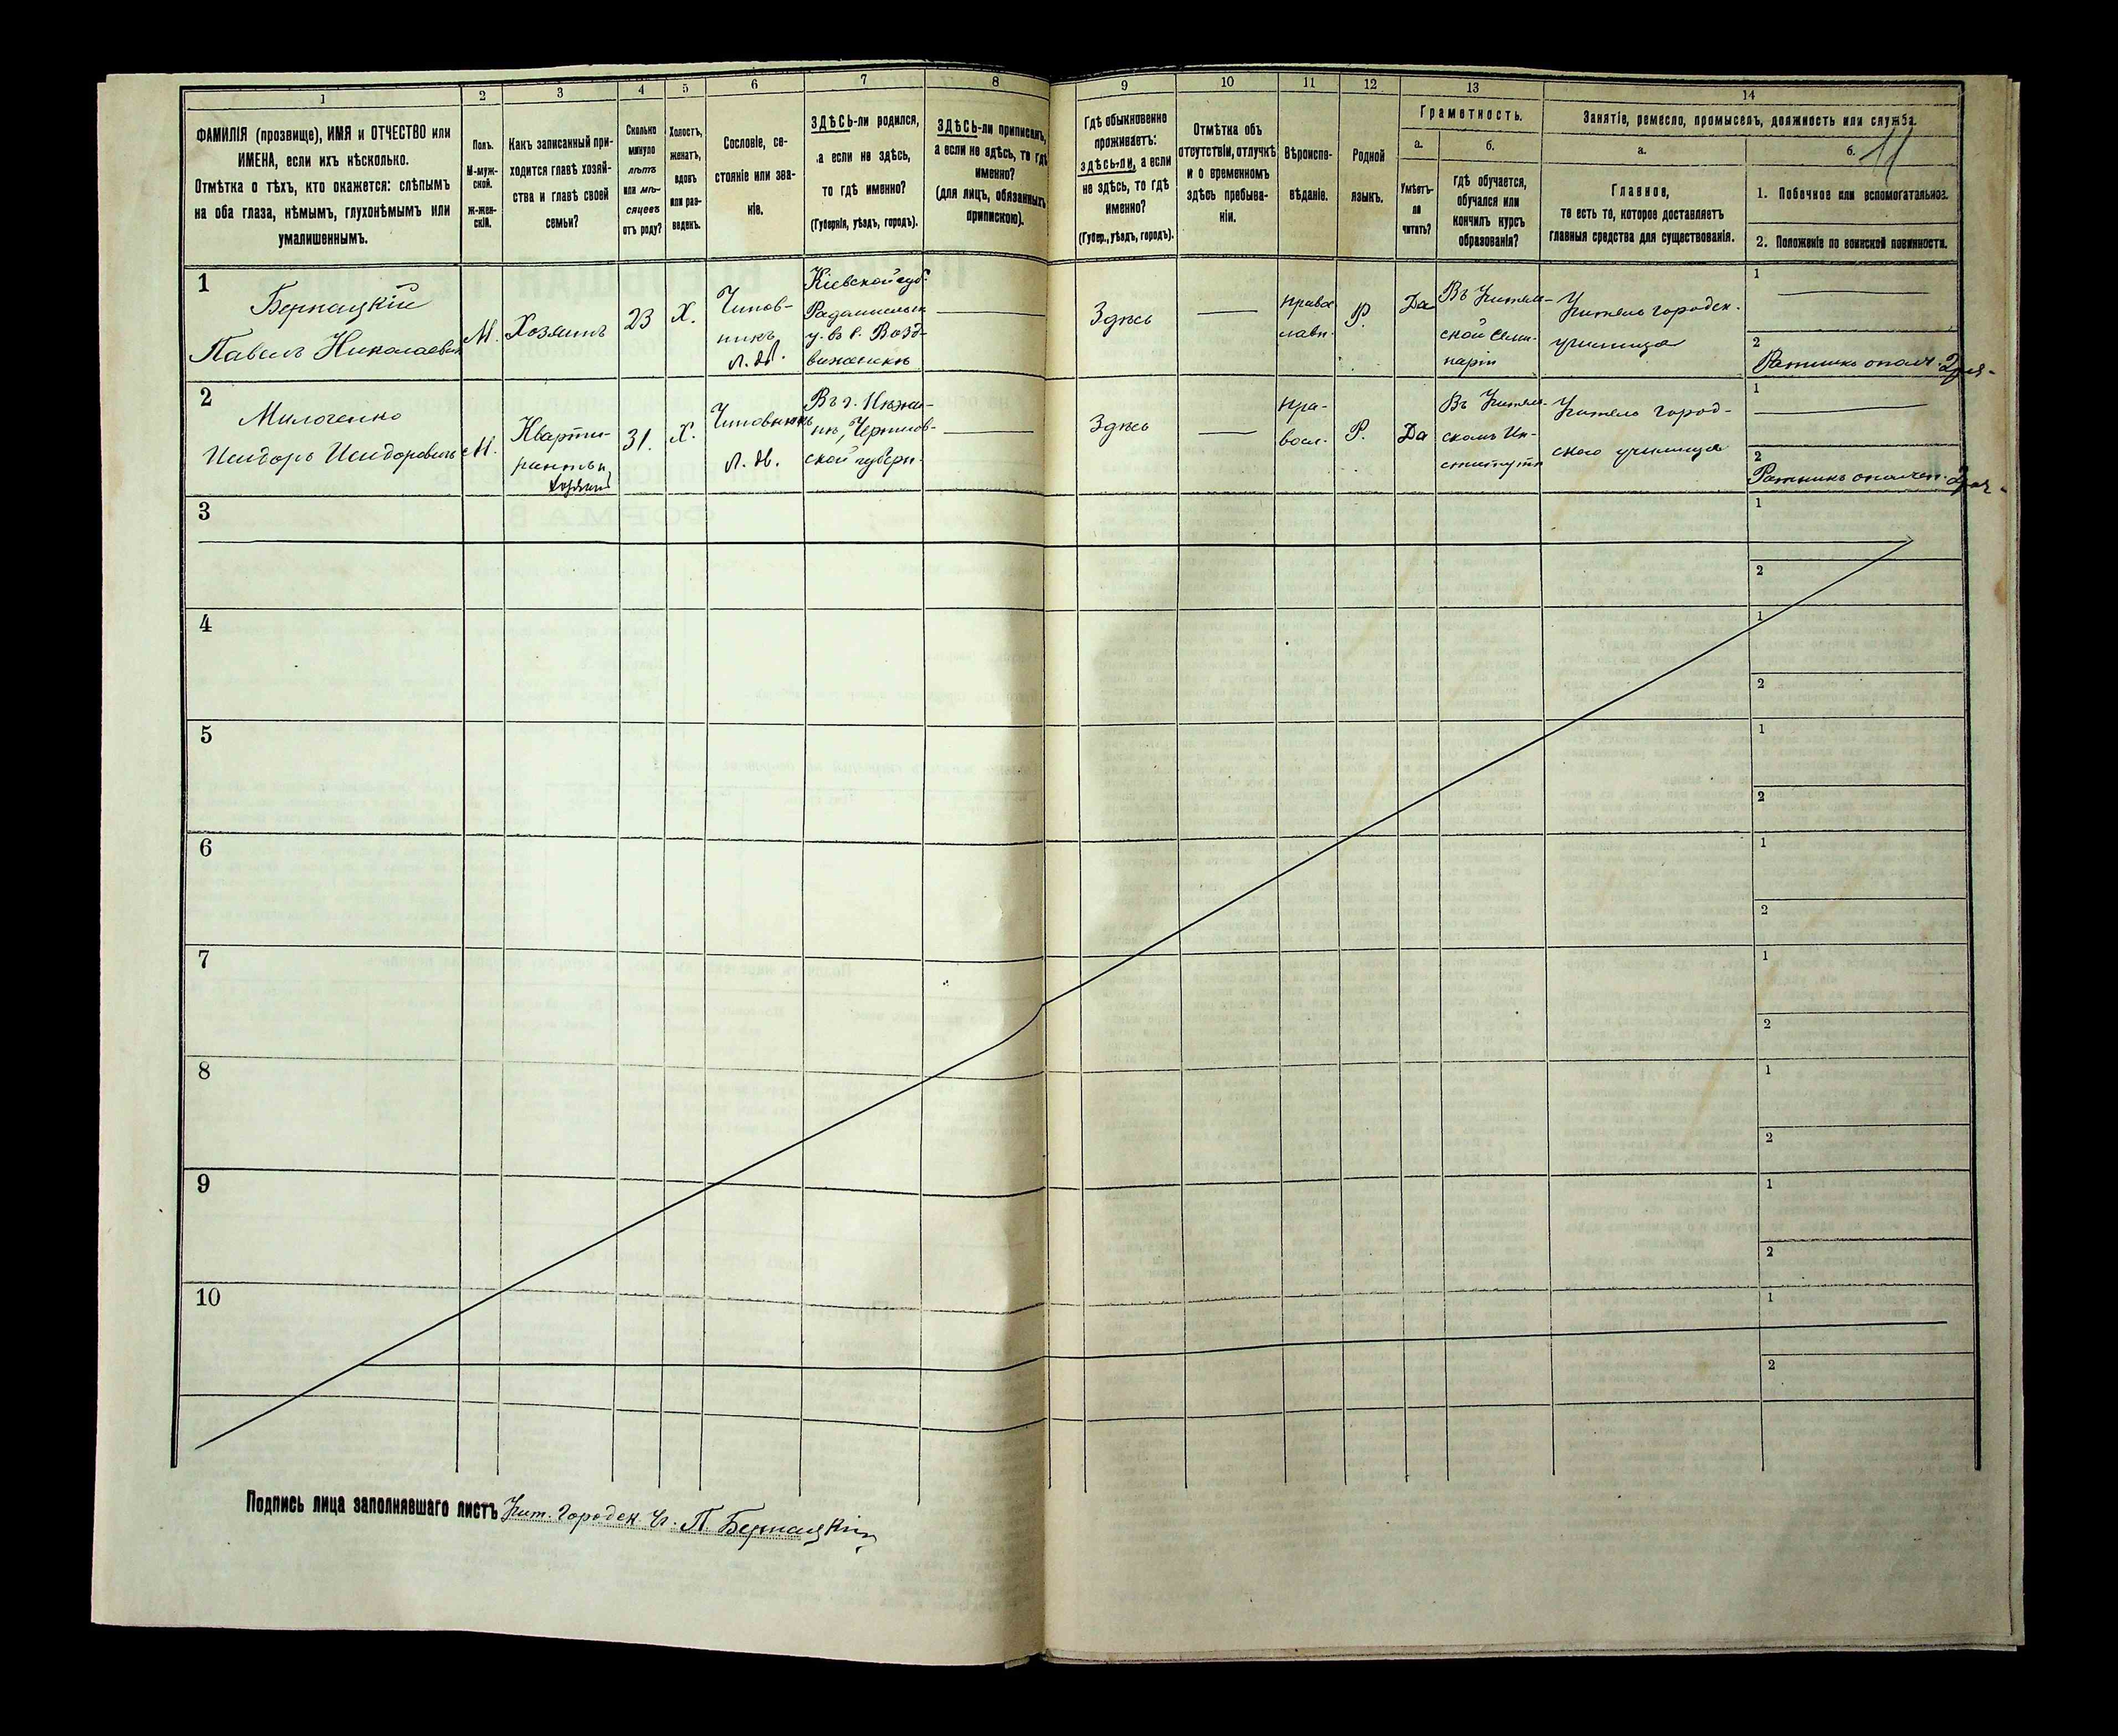 1
2
3
4
5
6
7
8
ФАМИЛІЯ (прозвище), ИМЯ и ОТЧЕСТВО или
ИМЕНА, если ихъ нѣсколько.
Отмѣтка о тѣхъ, кто окажется: слѣпымъ
на оба глаза, нѣмымъ, глухонѣмымъ или
умалишеннымъ.
Полъ.
М-муж-
ской.
Ж-жен-
скій.
Какъ записанный при-
ходится главѣ хозяй-
ства и главѣ своей
семьи?
Сколько
минуло
лѣтъ
или мѣ-
сяцевъ
отъ роду?
Холостъ,
женатъ,
вдовъ
или раз-
веденъ.
Сословіе, со-
стояніе или зва-
ніе.
ЗДѢСЬ-ли родился,
а если не здѣсь,
то гдѣ именно?
(Губернія, уѣздъ, городъ).
ЗДѢСЬ-ли приписанъ,
а если не здѣсь, то гдѣ
именно?
(для лицъ, обязанныхъ
припискою).
9
10
11
12
13
14
Гдѣ обыкновенно
проживаетъ:
здѣсь-ли, а если
не здѣсь, то гдѣ
именно?
(Губер., уѣздъ, городъ).
Отмѣтка объ
отсутствіи, отлучкѣ
и о временномъ
здѣсь пребыва-
ніи.
Вѣроиспо-
вѣданіе.
Родной
языкъ.
Грамотность.
а.
Умѣетъ-
ли
читать?
б.
Гдѣ обучается,
обучался или
кончилъ курсъ
образованія?
Занятіе, ремесло, промыселъ, должность или служба.
а.
Главное,
то есть то, которое доставляетъ
главныя средства для существованія.
б.
11
1. Побочное или вспомогательное.
2. Положеніе по воинской повинности.
1
Бернацкій
Павелъ Николаевич
М.
Хозяинъ
23
Х.
Чинов-
никъ
л. дв.
Кіевской губ.
Радомысльск
у. въ с. Возд-
виженскѣ
Здѣсь
Право
славн.
Р.
Да
Въ Учитель-
ской Семи-
наріи
Учитель городск.
училища
1
2
Ратникъ ополч. 2 раз-
2
Милоченко
Исидоръ Исидоровичъ
М.
Кварти-
рантъ
хозяинъ
31.
Х.
Чиновникъ
л. дв.
Въ г. Нѣжи-
нѣ, Чернигов-
ской губерн.
Здѣсь
Пра-
восл.
Р.
Да
Въ Учитель-
скомъ Ин-
ститутѣ
Учитель город-
ского училища
1
2
Ратникъ ополчен. 2 раз.
3
1
2
4
1
2
5
1
2
6
1
2
7
1
2
8
1
2
9
1
2
10
1
2
Подпись лица заполнявшаго листъ Учит. городск. уч. П. Бернацкій